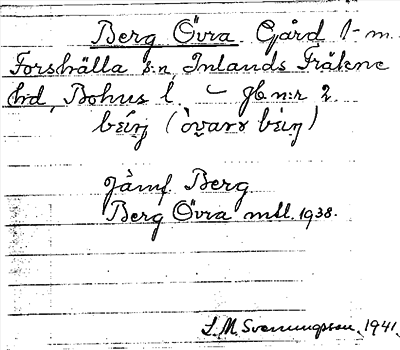 Berg Övra. Gård 1 m.
Forshälla s:n, Inlands Fräkne
hd, Bohus l. – Jb n:r 2.
Jämf. Berg
Berg Övra mtl. 1938.
S. M. Svenungsson 1941.